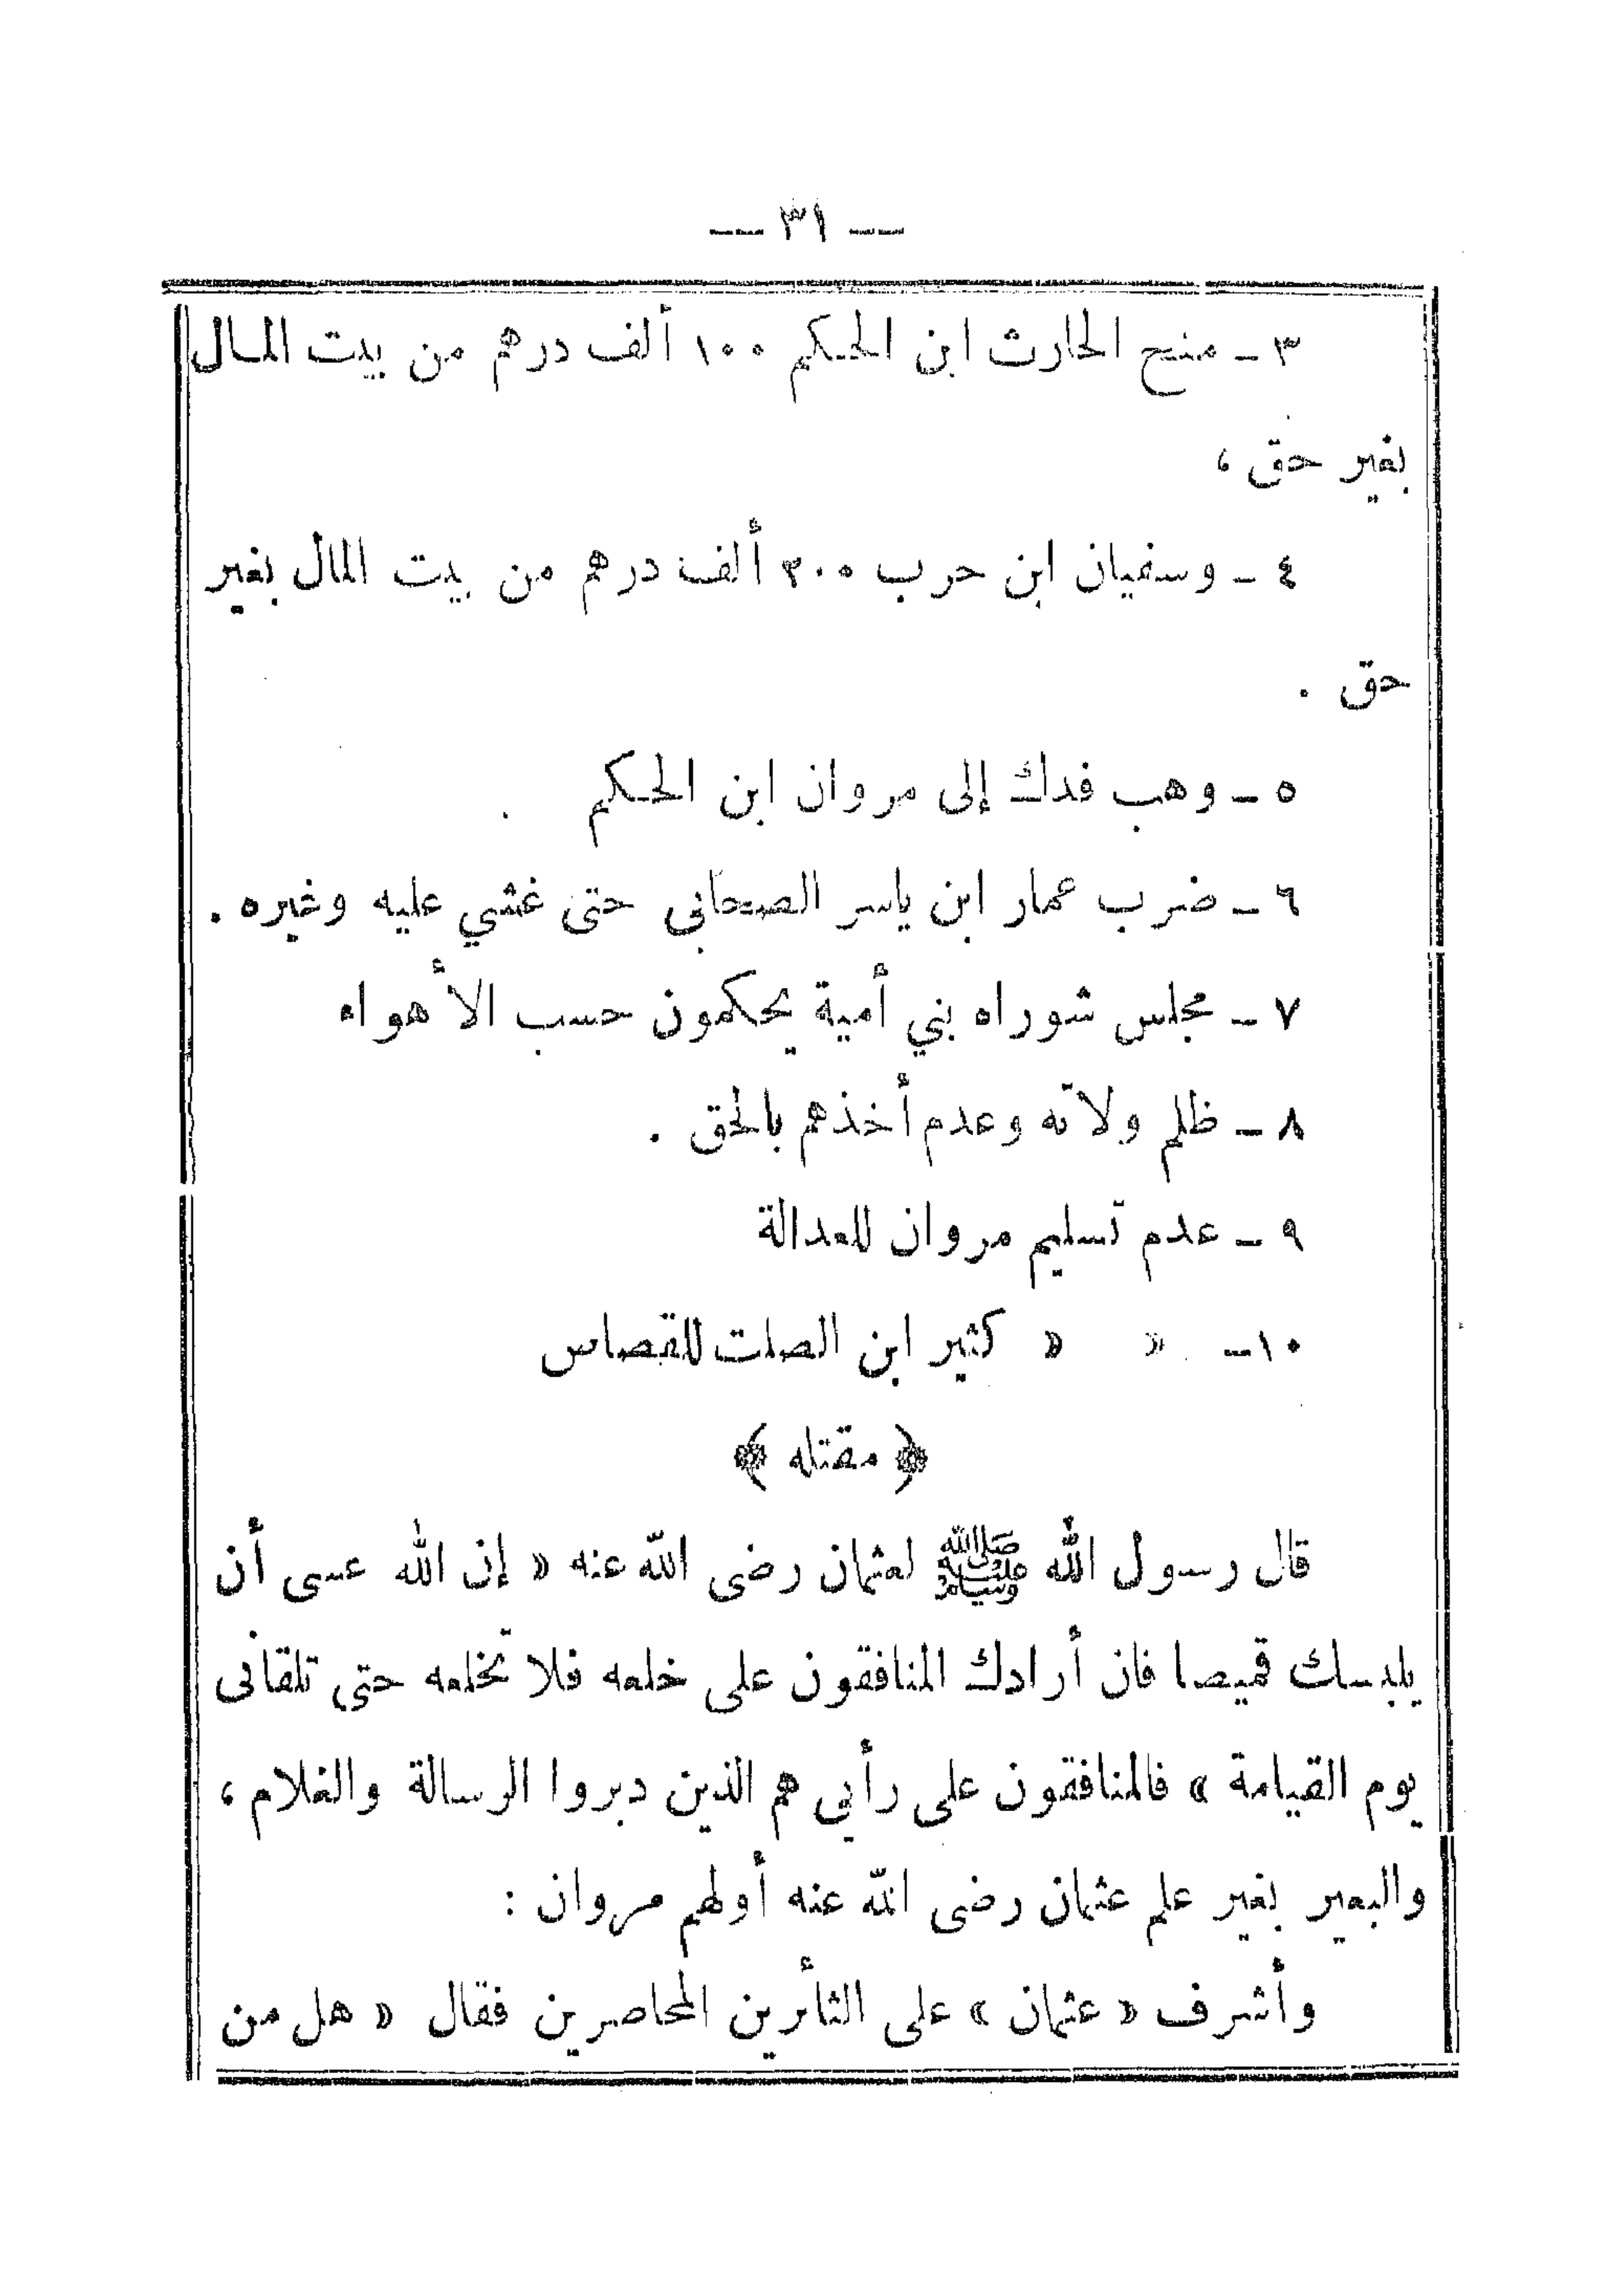 — ٣١ —
٣ - منح الحارث ابن الحكم ١٠٠ ألف درهم من بيت المال
بغير حق ،
٤ - وسفيان ابن حرب ٣٠٠ ألف درهم من بيت المال بغير
حق .
٥ - وهب فدك إلى مروان ابن الحكم
٦ - ضرب عمار ابن ياسر الصحابى حتى غشي عليه وغيره .
٧ - مجلس شوراه بني أمية يحكمون حسب الأهواء
٨ - ظلم ولاته وعدم أخذهم بالحق .
٩ - عدم تسليم مروان للعدالة
١٠- » » كثير ابن الصلت للقصاص
﴿ مقتله ﴾
قال رسول الله ﷺ لعثمان رضى الله عنه « إن الله عسى أن
يلبسك قميصا فان أرادك المنافقون على خلعه فلا تخلعه حتى تلقانى
يوم القيامة » فالمنافقون على رأيي هم الذين دبروا الرسالة والغلام ،
والبعير بغير علم عثمان رضى الله عنه أولهم مروان :
وأشرف « عثمان » على الثأرين المحاصرين فقال « هل من